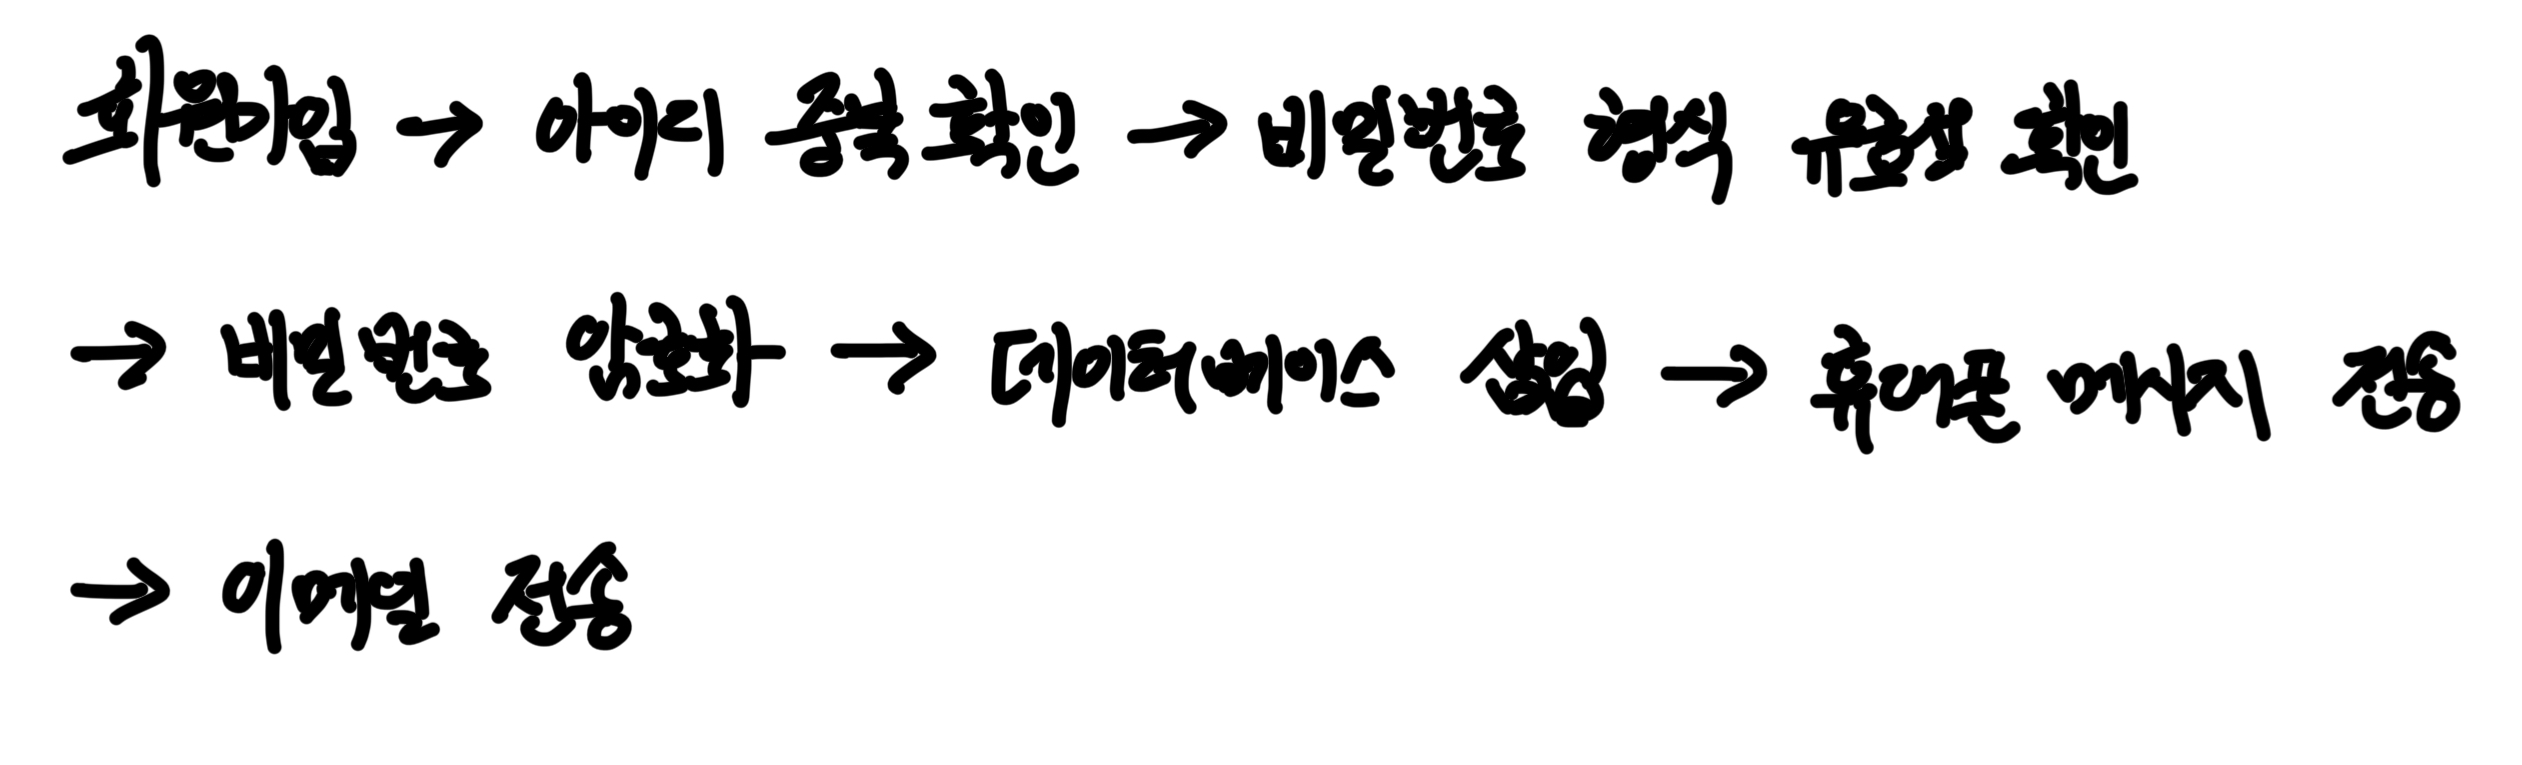 회원가입 → 아이디 중복 확인 → 비밀번호 형식 유효성 확인
→ 비밀번호 암호화 → 데이터베이스 삽입 → 휴대폰 메시지 전송
→ 이메일 전송